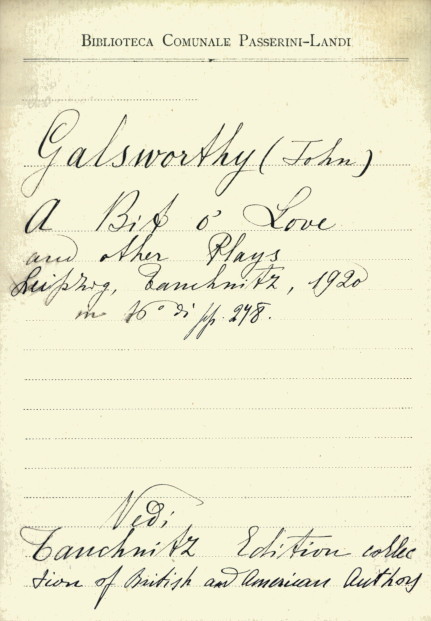 BIBLIOTECA COMUNALE PASSERINI-LANDI
Galsworthy (John)
A Bit o' Love
and other Plays
Leipzig, Tauchnitz, 1920
in 16° di pp. 278.
Vedi
Tauchnitz Edition collec
tion of British and American Authors